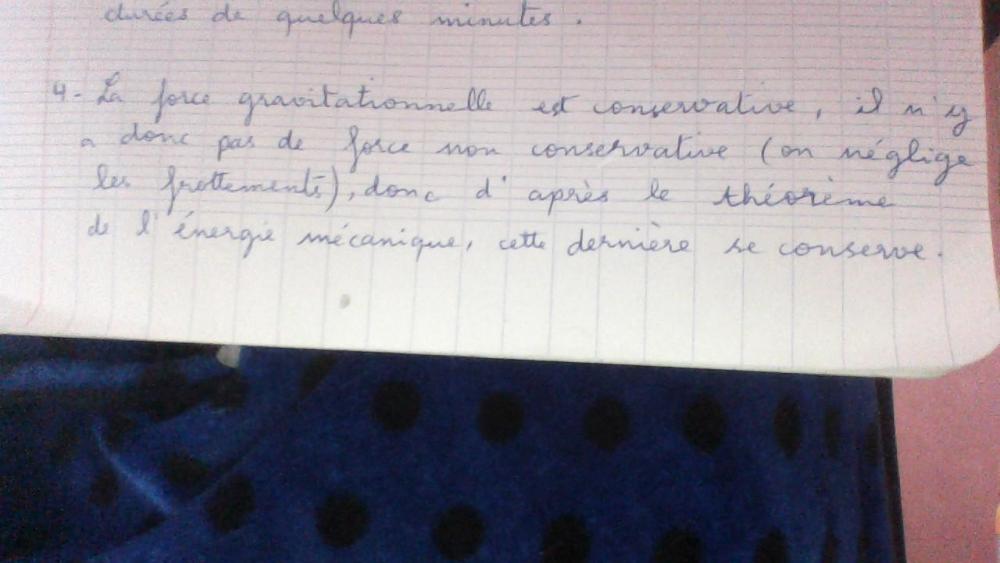 durées de quelques minutes.
4- La force gravitationnelle est conservative, il n'y
a donc pas de force non conservative (on néglige
les frottements), donc d'après le théorème
de l'énergie mécanique, cette dernière se conserve.